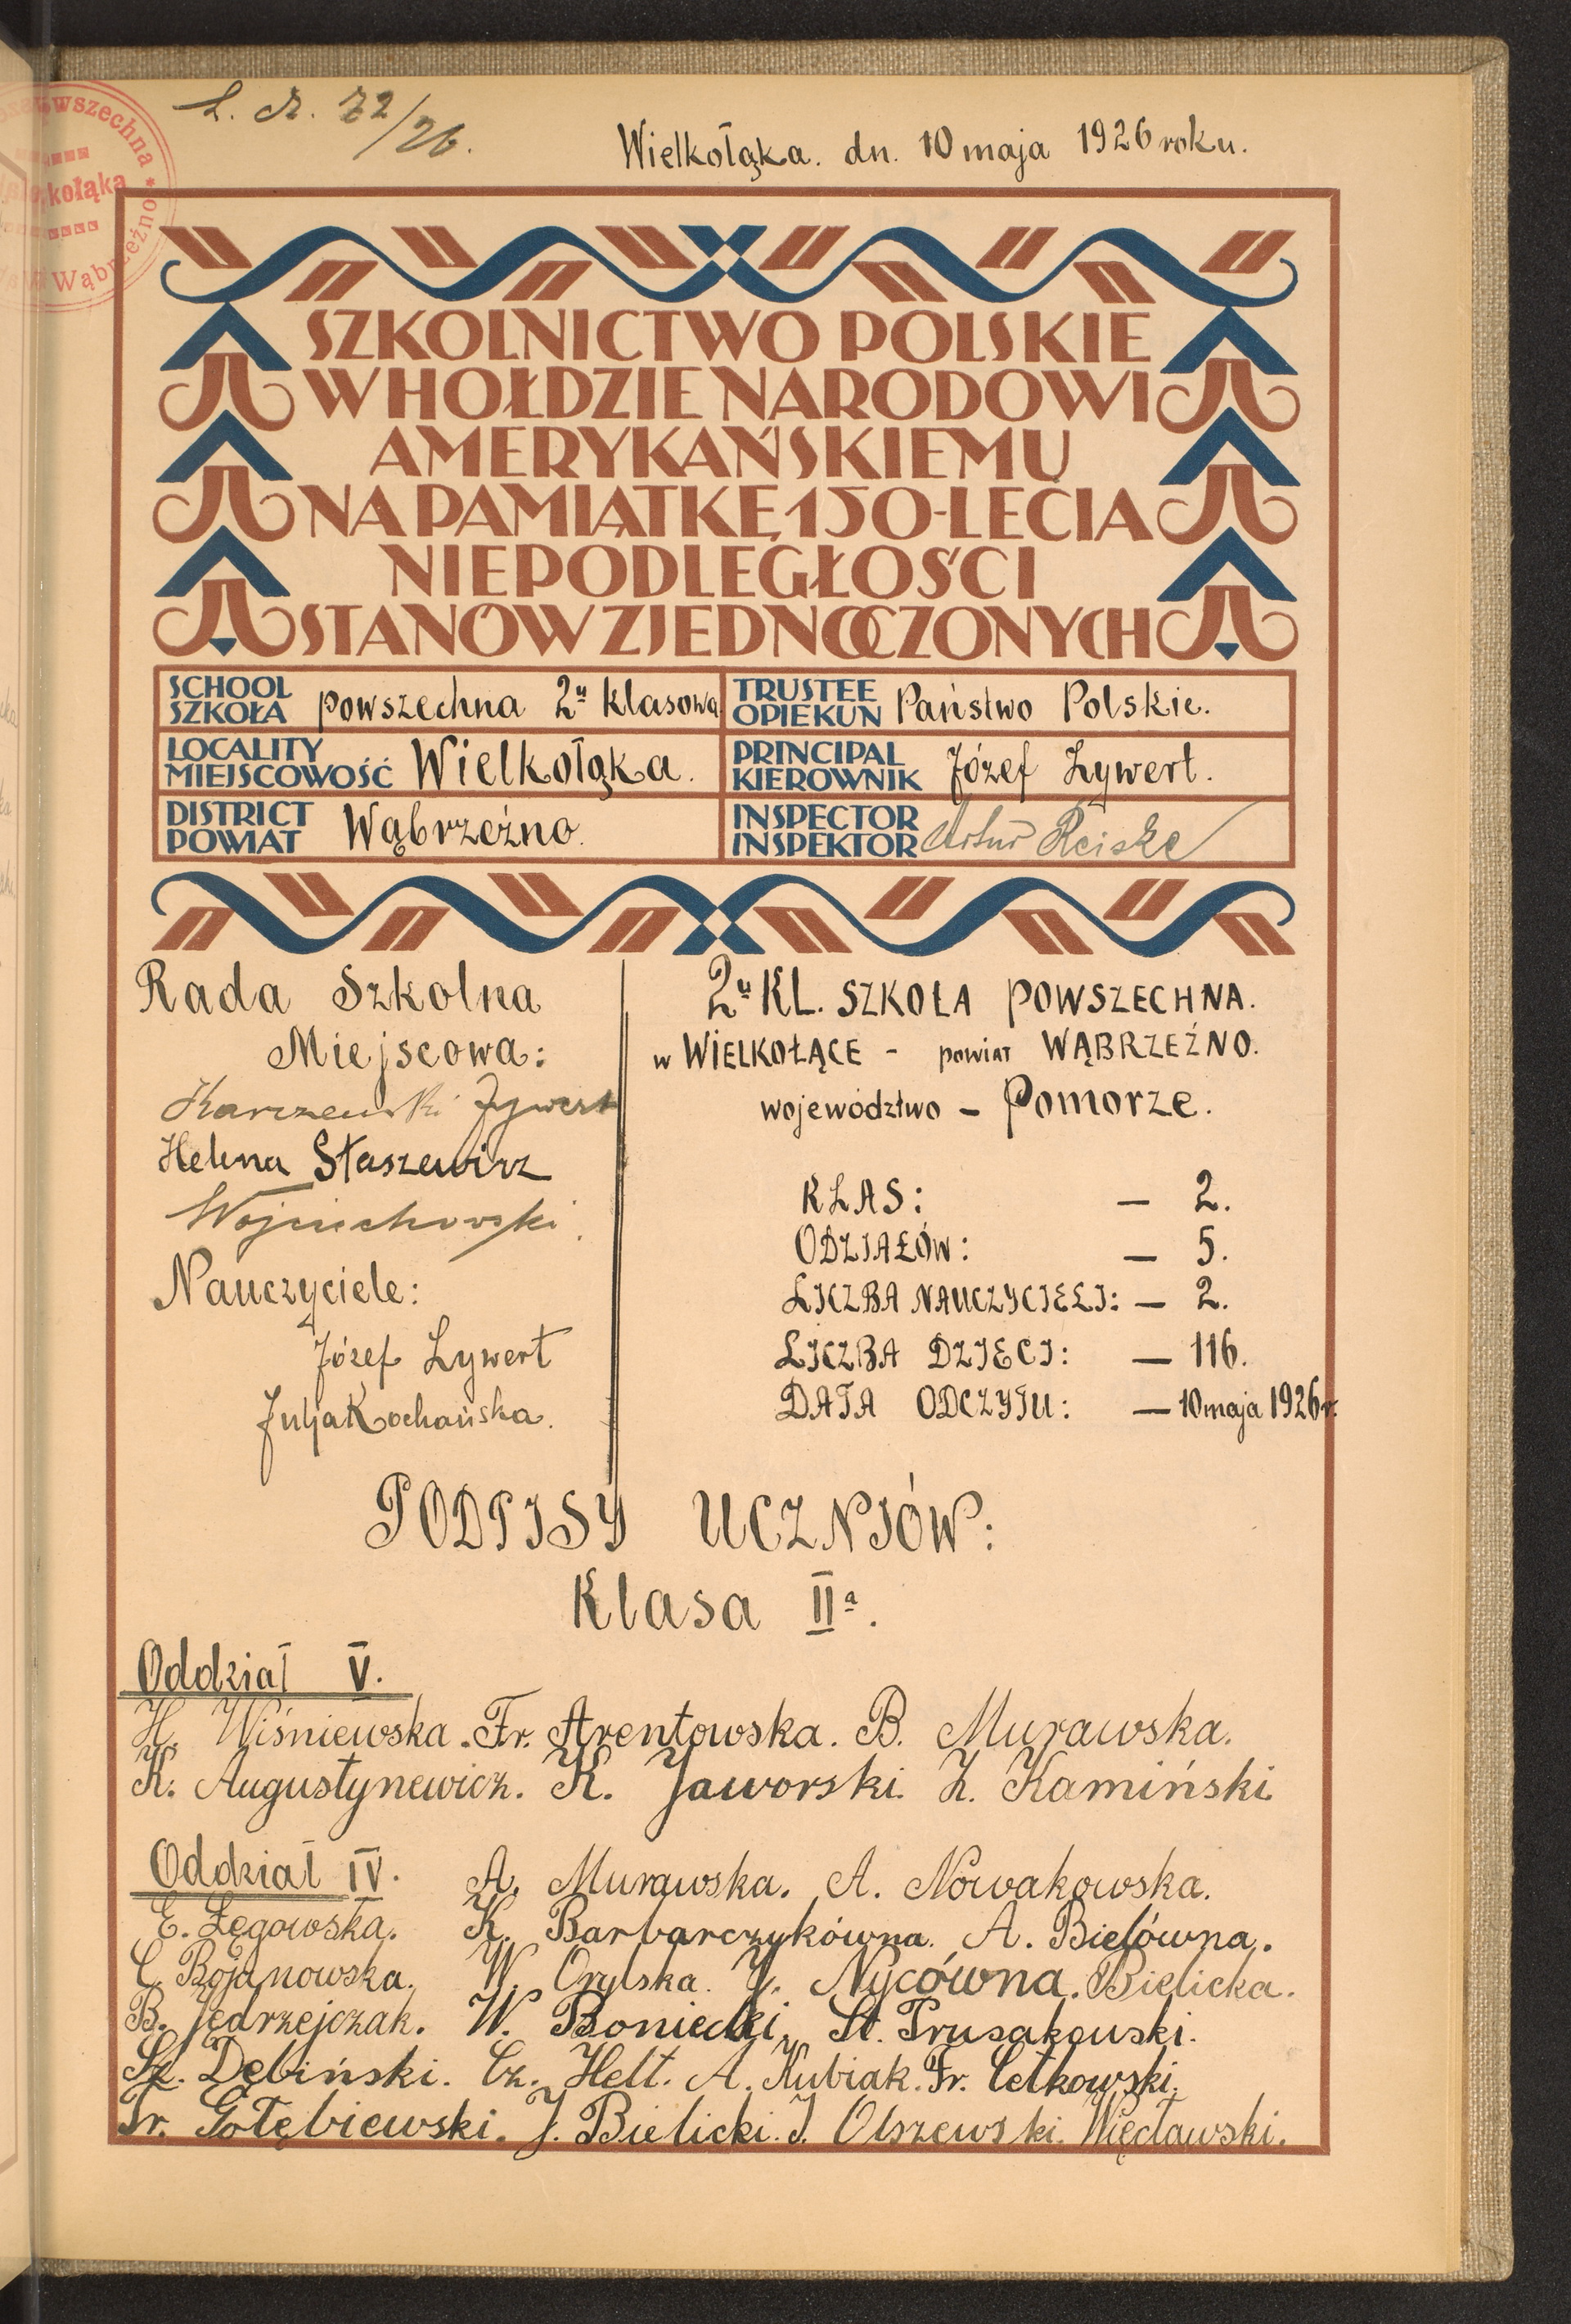 L. dz. 72/26.
Wielkołąka. dn. 10 maja 1926 roku.
wszechna *
kołąka
Wąbrzeźno
SZKOLNICTWO POLSKIE
W HOŁDZIE NARODOWI
AMERYKAŃSKIEMU
NA PAMIĄTKĘ 150-LECIA
NIEPODLEGŁOŚCI
STANÓW ZJEDNOCZONYCH
SCHOOL
SZKOŁA powszechna 2u klasowa
TRUSTEE
OPIEKUN Państwo Polskie.
LOCALITY
MIEJSCOWOŚĆ Wielkołąka.
PRINCIPAL
KIEROWNIK Józef Zywert.
DISTRICT
POWIAT Wąbrzeźno.
INSPECTOR
INSPEKTOR Artur Reiske
Rada Szkolna
Miejscowa:
Karczewski Zywert
Helena Staszewicz
Wojciechowski.
Nauczyciele:
Józef Zywert
Julja Kochańska.
2u KL. SZKOŁA POWSZECHNA.
w WIELKOŁĄCE - powiat WĄBRZEŹNO.
województwo - Pomorze.
KLAS: - 2.
ODZIAŁÓW: - 5.
LICZBA NAUCZYCIELI: - 2.
LICZBA DZIECI: - 116.
DATA ODCZYTU: - 10 maja 1926 r.
PODPISY UCZNIÓW:
Klasa IIa.
Oddział V.
H. Wiśniewska. Fr. Arentowska. B. Murawska.
K. Augustynewicz. K. Jaworski. Z. Kamiński
Oddział IV. A. Murawska. A. Nowakowska.
E. Łęgowska. K. Barbarczykówna. A. Bielówna.
C. Bojanowska. W. Orylska. J. Nycówna. Bielicka.
B. Jędrzejczak. W. Boniecki. St. Prusakowski.
Sz. Dębiński. Cz. Helt. A. Kubiak. Fr. Cetkowski.
Fr. Gołębiewski. J. Bielicki. J. Olszewski. Więcławski.